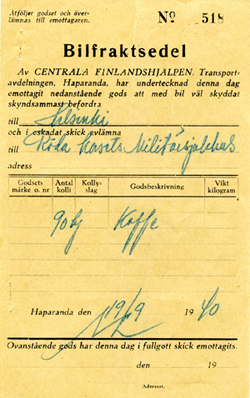 Åtföljer godset och över-
lämnas till emottagaren.
Nº 518
Bilfraktsedel
Av CENTRALA FINLANDSHJÄLPEN, Transport-
avdelningen, Haparanda, har undertecknad denna dag
emottagit nedanstående gods att med bil väl skyddat
skyndsammast befordra
till Helsinki
och i oskadat skick avlämna
till Röda Korsets Militärsjukhus
adress
Godsets märke o. nr Antal kolli Kolly-slag Godsbeskrivning Vikt kilogram
90 kg Kaffe
Haparanda den 19/9 1940
Ovanstående gods har denna dag i fullgott skick emottagits.
den 19
Adressat.